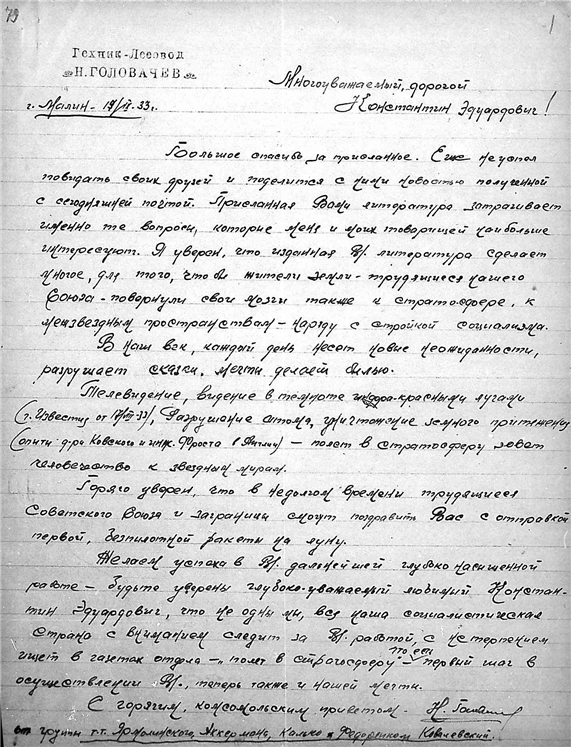 79
1
Техник-Лесовод
Н.ГОЛОВАЧЕВ
Многоуважаемый, дорогой
г. Малин - 19/IX-33г. Константин Эдуардович!
Большое спасибо за присланное. Еще не успел
повидать своих друзей и поделится с ними новостью полученной
с сегодняшней почтой. Присланная Вами литература затрагивает
именно те вопросы, которые меня и моих товарищей наиболее
интересуют. Я уверен, что изданная В/. литература сделает
многое, для того, что бы жители земли - трудящиеся нашего
Союза - повернули свои мозги также к стратосфере, к
межзвездным пространствам - наряду с стройкой социализма.
В наш век, каждый день несет новые неожиданности,
разрушает сказки, мечты делает былью.
Телевидение, видение в темноте инфра-красными лучами
(г. Известия от 33), Разрушение атома, уничтожение земного притяжения
(опыты д-ра Ковского и инж. Фроста в Англии) - полет в стратосферу зовет
человечество к звездным мирам.
Горячо уверен, что в недолгом времени трудящиеся
Советского Союза и заграницы смогут поздравить Вас с отправкой
первой, безпилотной ракеты на луну.
Желаем успеха в В/. дальнейшей глубоко насыщенной
работе - будьте уверены глубоко-уважаемый любимый Констан-
тин Эдуардович, что не одны мы, вся наша социалистическая
страна с вниманием следит за В/. работой, с нетерпением
ищет в газетах отдела - "полет в стратосферу" - первый шаг в
осуществлении В/., теперь также и нашей мечты.
С горячим, комсомольским приветом. Н.
от группы т.т. Ярмолинского, Аккермана, Калько и Федоренком Ковалевский.